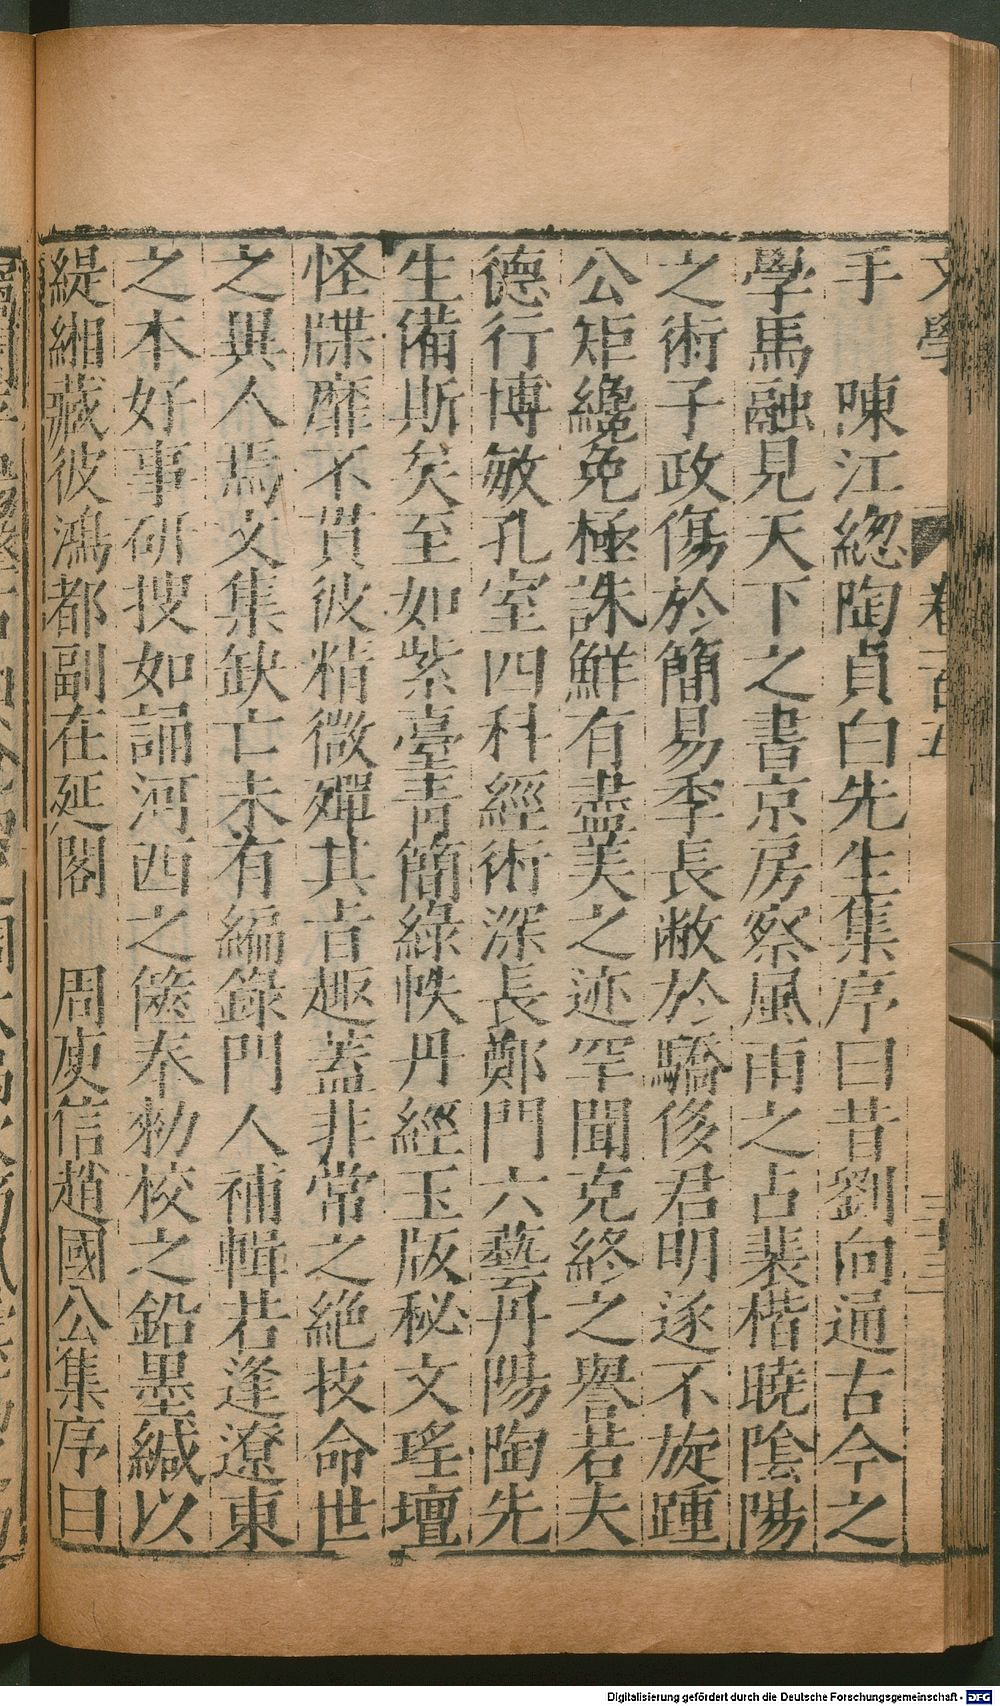 手 陳江緫陶貞白先生集序曰昔劉向通古今之
學馬融見天下之書京房察風雨之占裴楷曉隂陽
之術子政傷於簡易季長敝於驕侈君明遂不旋踵
公矩纔免極誅鮮有盡美之迹罕聞克終之譽若夫
德行博敏孔室四科經術深長鄭門六藝丹陽陶先
生備斯矣至如紫臺青簡綠帙丹經玉版秘文瑤壇
怪牒靡不貫彼精微殫其㫖趣蓋非常之絶技命世
之異人焉文集缺亡未有編錄門人補輯若逢遼東
之本好事研搜如誦河西之篋奉勑校之鉛墨緘以
緹緗藏彼鴻都副在延閣 周庾信趙國公集序曰
文學 卷一百五
Digitalisierung gefördert durch die Deutsche Forschungsgemeinschaft - DFG